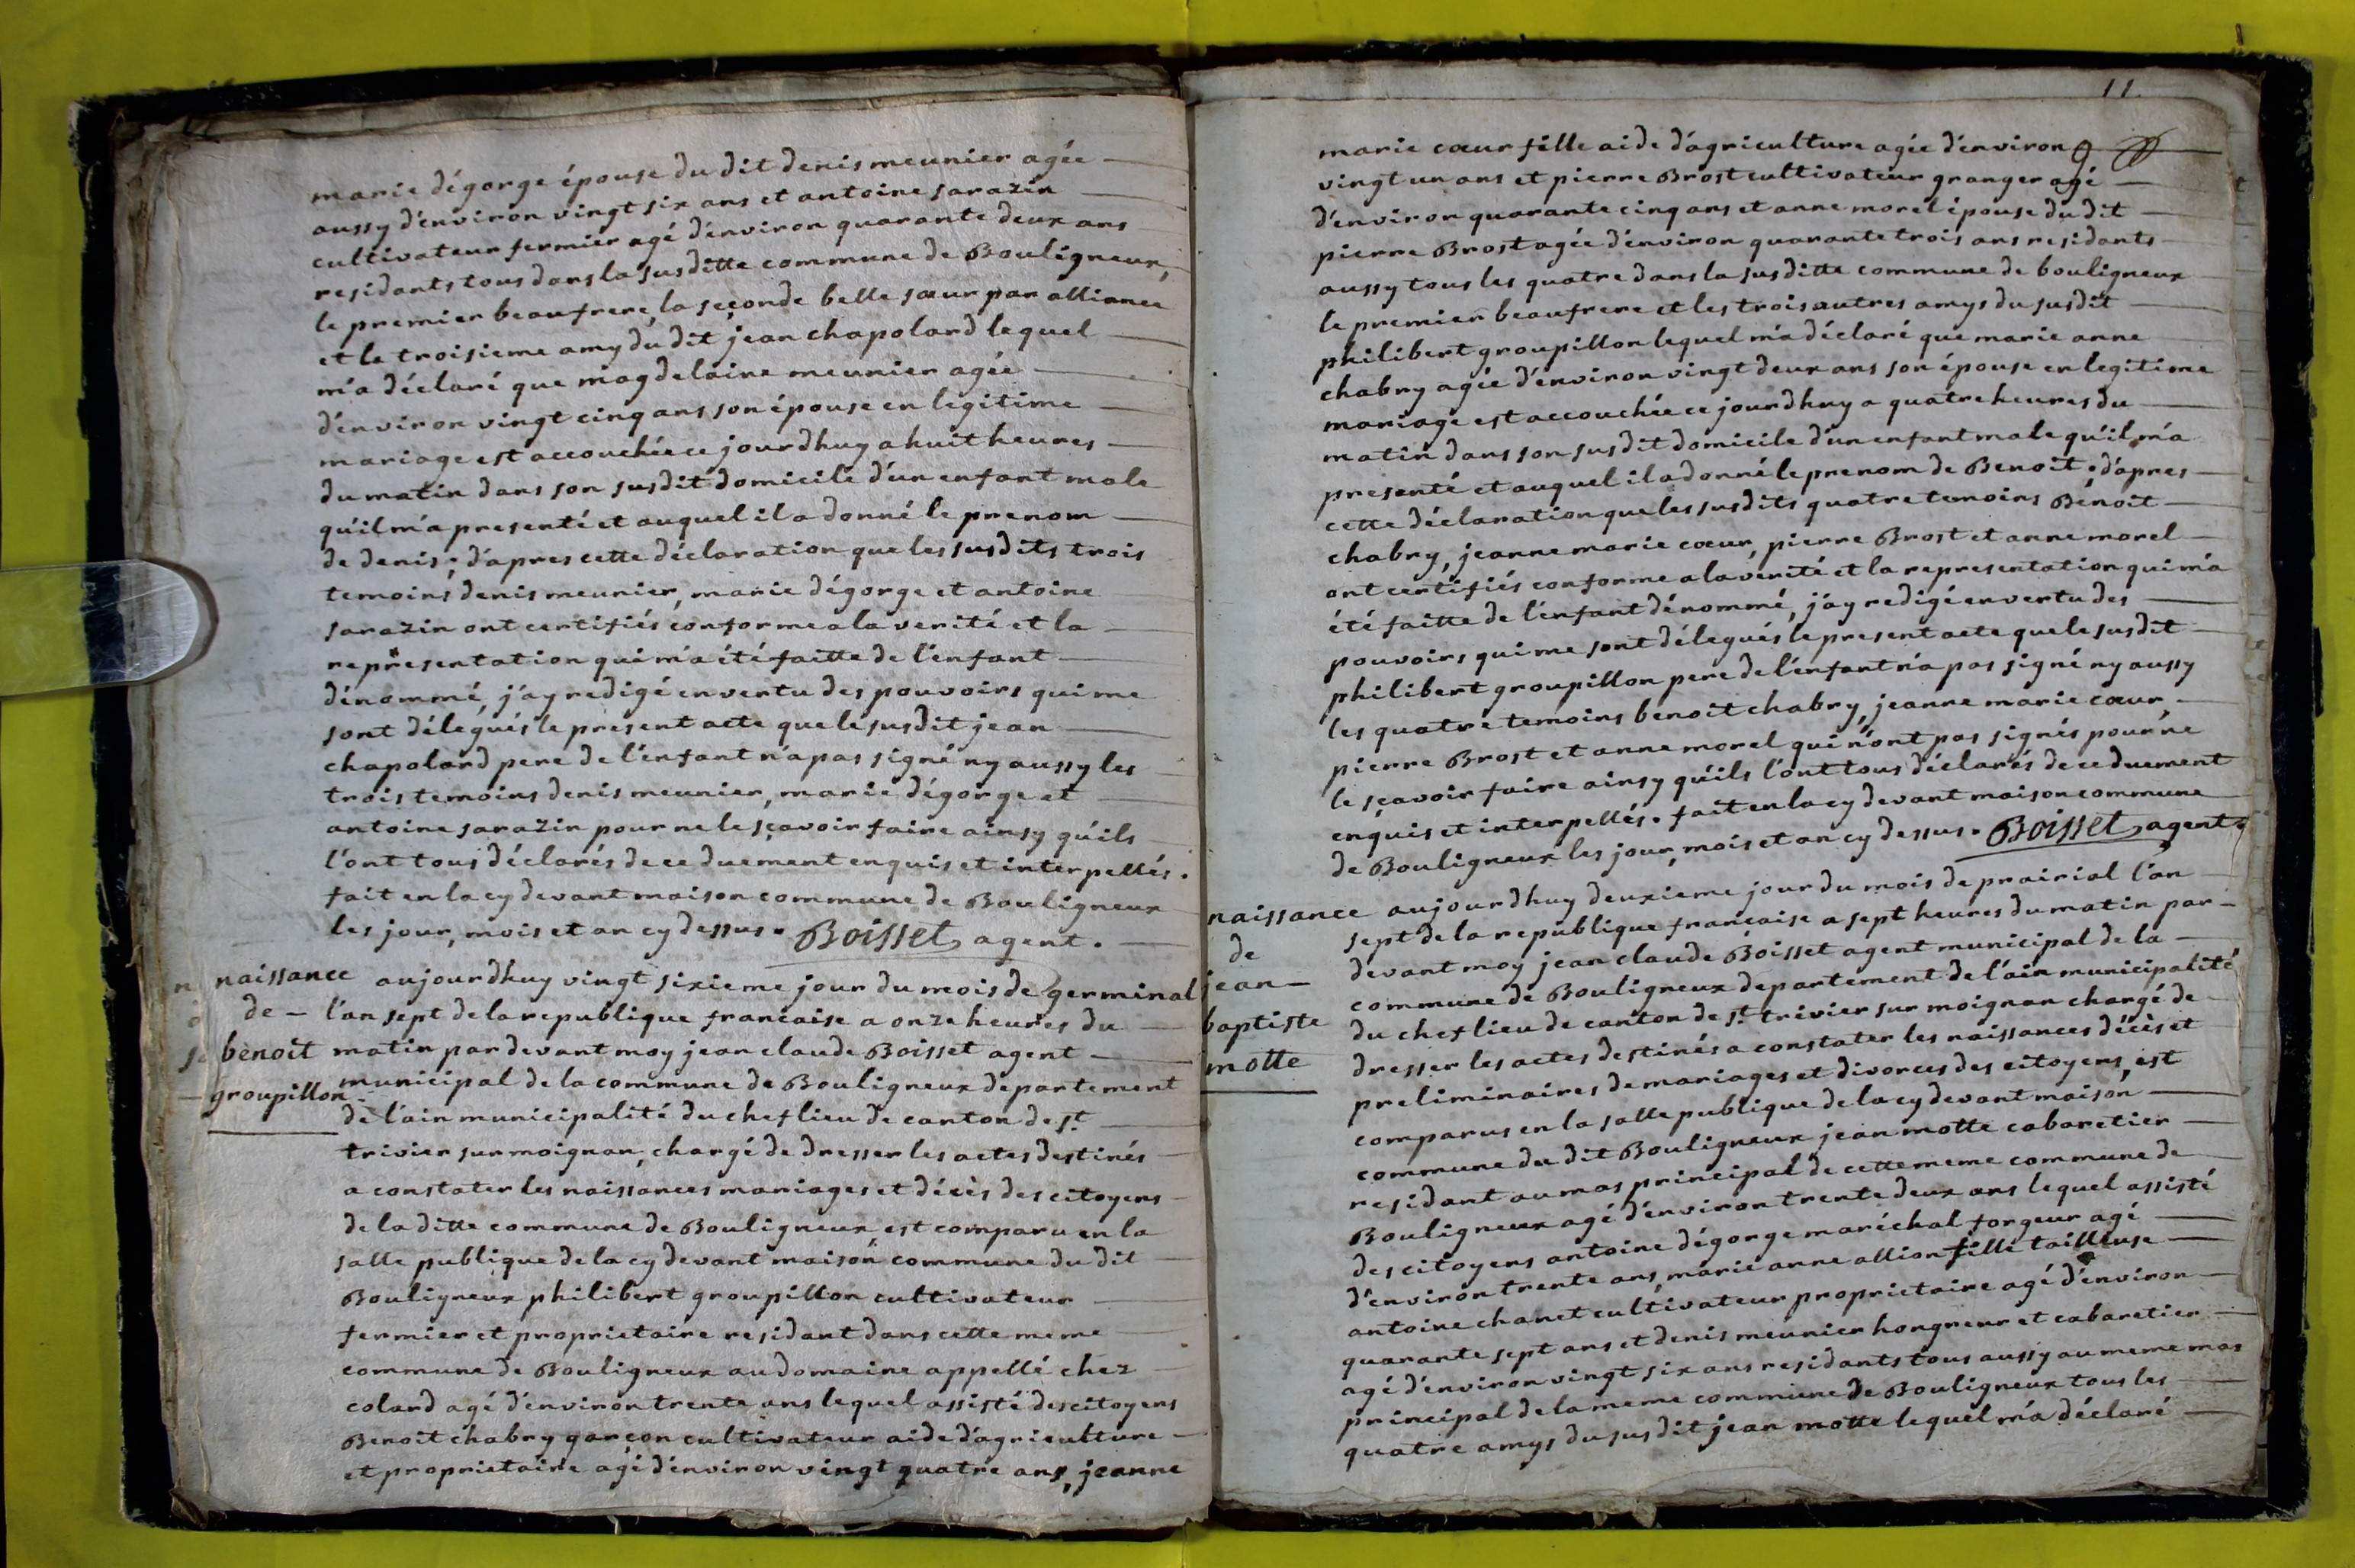 marie dégorge épouse du dit denis meunier agée
aussy d'environ vingt six ans et antoine sarazin
cultivateur fermier agé d'environ quarante deux ans
residants tous dans la susditte commune de Bouligneux,
le premier beaufrere, la seconde belle sœur par alliance
et le troisieme amy du dit jean chapolard lequel
m'a déclaré que magdelaine meunier agée
d'environ vingt cinq ans son épouse en legitime
mariage est accouchée ce jourdhuy a huit heures
du matin dans son susdit domicile d'un enfant male
qu'il m'a presenté et auquel il a donné le prenom
de denis; d'apres cette déclaration que les susdits trois
temoins denis meunier, marie dégorge et antoine
sarazin ont certifiés conforme a la verité et la
representation qui m'a été faitte de l'enfant
dénommé, j'ay redigé en vertu des pouvoirs qui me
sont délegués le present acte que le susdit jean
chapolard pere de l'enfant n'a pas signé ny aussy les
trois temoins denis meunier, marie dégorge et
antoine sarazin pour ne le sçavoir faire ainsy qu'ils
l'ont tous déclarés de ce duement enquis et interpellés.
fait en la cy devant maison commune de Bouligneux
les jour, mois et an cy dessus. Boisset agent.
naissance
de
benoit
groupillon
aujourdhuy vingt sixieme jour du mois de germinal
l'an sept de la republique francaise a onze heures du
matin pardevant moy jean claude Boisset agent
municipal de la commune de Bouligneux departement
de l'ain municipalité du chef lieu de canton de st
trivier sur moignan, chargé de dresser les actes destinés
a constater les naissances mariages et décès des citoyens
de la ditte commune de Bouligneux, est comparu en la
salle publique de la cy devant maison commune du dit
Bouligneux philibert groupillon cultivateur
fermier et proprietaire residant dans cette meme
commune de Bouligneux au domaine appellé chez
colard agé d'environ trente ans lequel assisté des citoyens
Benoit chabry garçon cultivateur aide d'agriculture
et proprietaire agé d'environ vingt quatre ans, jeanne
11
marie cœur fille aide d'agriculture agée d'environ
vingt un ans et pierre Brost cultivateur granger agé
d'environ quarante cinq ans et anne morel épouse du dit
pierre Brost agée d'environ quarante trois ans residants
aussy tous les quatre dans la susditte commune de bouligneux
le premier beaufrere et les trois autres amys du susdit
philibert groupillon lequel m'a déclaré que marie anne
chabry agée d'environ vingt deux ans son épouse en legitime
mariage est accouchée ce jourdhuy a quatre heures du
matin dans son susdit domicile d'un enfant male qu'il m'a
presenté et auquel il a donné le prenom de Benoit. d'apres
cette déclaration que les susdits quatre temoins Benoit
chabry, jeanne marie cœur, pierre Brost et anne morel
ont certifiés conforme a la verité et la representation qui m'a
été faitte de l'enfant dénommé, j'ay redigé en vertu des
pouvoirs qui me sont délegués le present acte que le susdit
philibert groupillon pere de l'enfant n'a pas signé ny aussy
les quatre temoins benoit chabry, jeanne marie cœur,
pierre Brost et anne morel qui n'ont pas signés pour ne
le sçavoir faire ainsy qu'ils l'ont tous déclarés de ce duement
enquis et interpellés. fait en la cy devant maison commune
de Bouligneux les jour, mois et an cy dessus. Boisset agent.
naissance
de
jean-
baptiste
motte
aujourdhuy deuxieme jour du mois de prairial l'an
sept de la republique francaise a sept heures du matin par-
devant moy jean claude Boisset agent municipal de la
commune de Bouligneux departement de l'ain municipalité
du chef lieu de canton de st trivier sur moignan chargé de
dresser les actes destinés a constater les naissances décès et
preliminaires de mariages et divorces des citoyens, est
comparus en la salle publique de la cy devant maison
commune du dit Bouligneux jean motte cabaretier
residant au mas principal de cette meme commune de
Bouligneux agé d'environ trente deux ans lequel assisté
des citoyens antoine dégorge maréchal forgeur agé
d'environ trente ans, marie anne allion fille tailleuse
antoine chanet cultivateur proprietaire agé d'environ
quarante sept ans et denis meunier hongreur et cabaretier
agé d'environ vingt six ans residants tous aussy au meme mas
principal de la meme commune de Bouligneux tous les
quatre amys du susdit jean motte lequel m'a déclaré